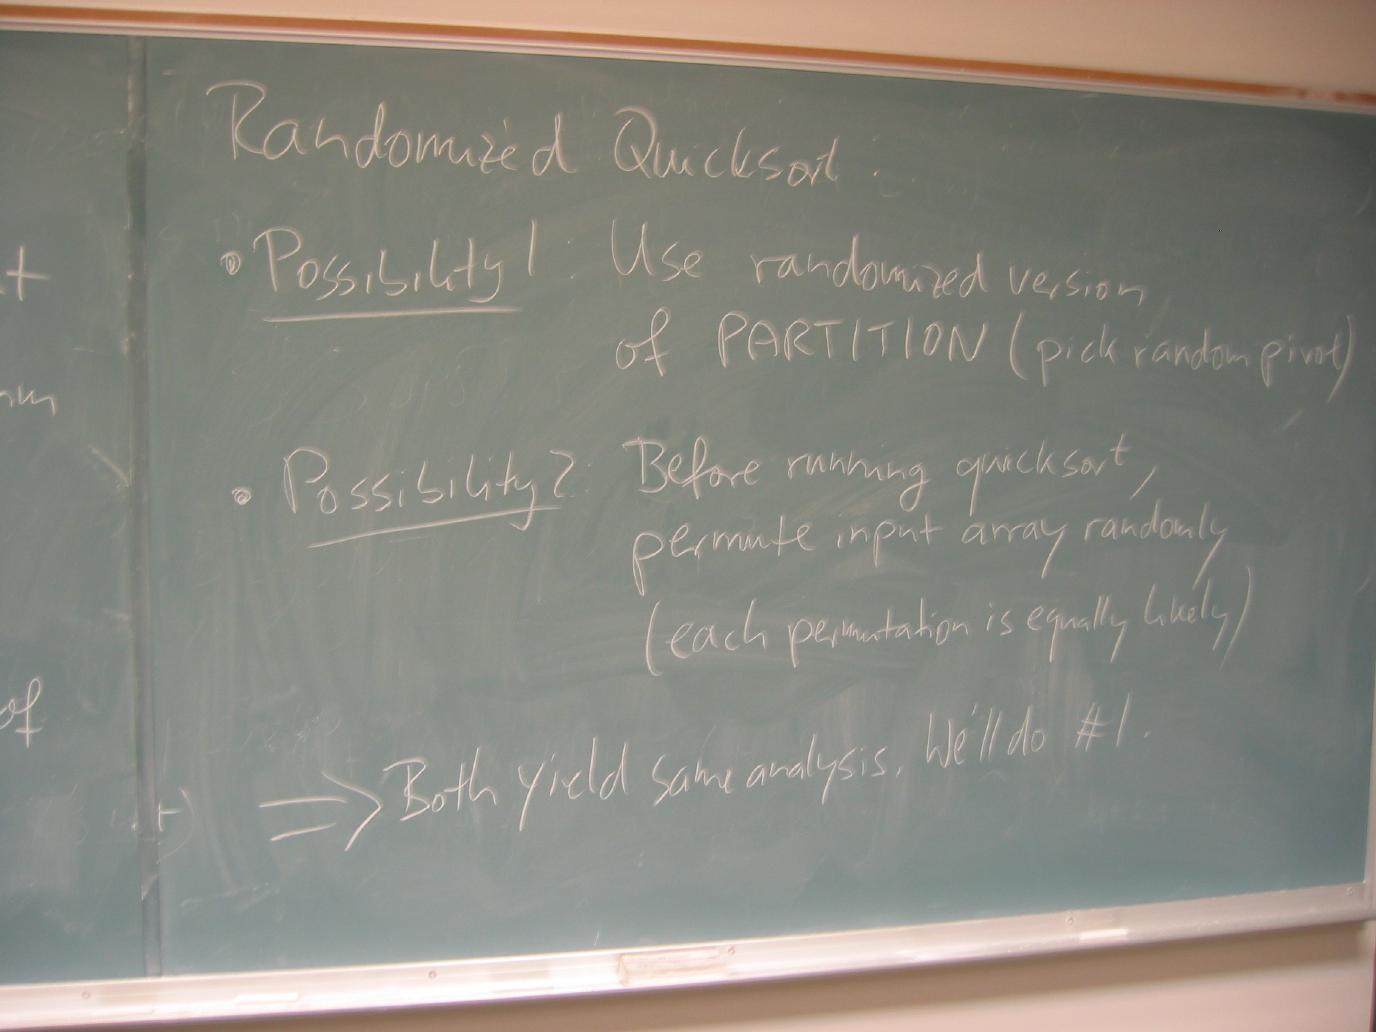 Randomized Quicksort.
• Possibility 1: Use randomized version
of PARTITION (pick random pivot)
• Possibility 2: Before running quicksort,
permute input array randomly
(each permutation is equally likely)
⇒ Both yield same analysis. We'll do #1.
of